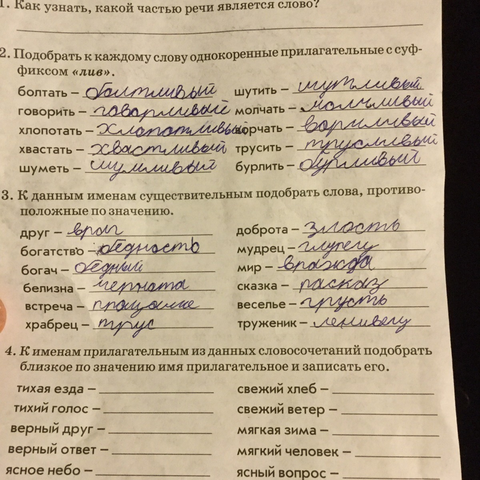 1. Как узнать, какой частью речи является слово?
2. Подобрать к каждому слову однокоренные прилагательные с суф-
фиксом «лив».
болтать – болтливый шутить – шутливый
говорить – говорливый молчать – молчливый
хлопотать – хлопотливый ворчать – ворчливый
хвастать – хвастливый трусить – трусливый
шуметь – шумливый бурлить – бурливый
3. К данным именам существительным подобрать слова, противо-
положные по значению.
друг – враг доброта – злость
богатство – бедность мудрец – глупец
богач – бедный мир – вражда
белизна – чернота сказка – расказ
встреча – прощание веселье – грусть
храбрец – трус труженик – ленивец
4. К именам прилагательным из данных словосочетаний подобрать
близкое по значению имя прилагательное и записать его.
тихая езда – свежий хлеб –
тихий голос – свежий ветер –
верный друг – мягкая зима –
верный ответ – мягкий человек –
ясное небо – ясный вопрос –